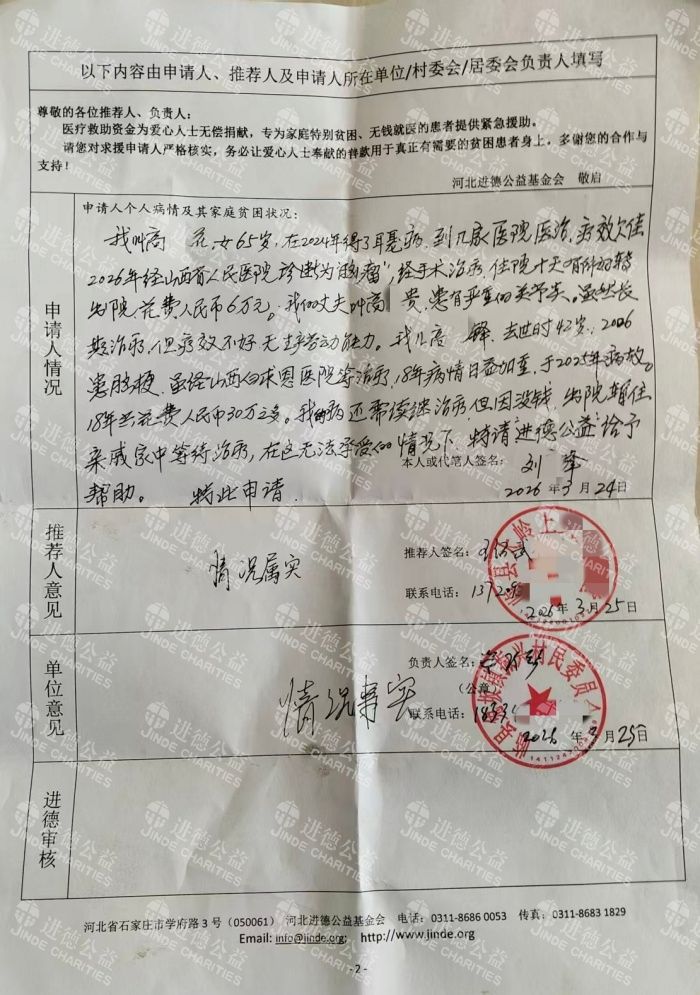 以下内容由申请人、推荐人及申请人所在单位/村委会/居委会负责人填写
尊敬的各位推荐人、负责人：
医疗救助资金为爱心人士无偿捐献，专为家庭特别贫困、无钱就医的患者提供紧急援助。
请您对求援申请人严格核实，务必让爱心人士奉献的善款用于真正有需要的贫困患者身上，多谢您的合作与
支持！
河北进德公益基金会 敬启
申请人情况
申请人个人病情及其家庭贫困状况：
我叫高 花，女65岁，在2024年得了耳聋病，到几家医院医治，疗效欠佳
2026年经山西省人民医院，诊断为"脑瘤"，经手术治疗，住院十天有
出院，花费人民币6万元。我的丈夫叫高 贵，患有严重的类风关。虽然长
期治疗，但疗效不好无劳动能力。我儿高 锋，去世时42岁，2006
患脑梗，虽经山西白求恩医院等治疗，18年病情日益加重，于2025年病故。
18年共花费人民币30万之多。我的病还需续继治疗但因没钱，出院暂住
亲戚家中等待治疗，在这无法承受的情况下，特请"进德公益"给予
帮助。 特此申请
本人或代笔人签名： 刘
2026年3月24日
推荐人意见
情况属实
推荐人签名：
联系电话：1372
2026年3月25日
单位意见
情况事实
负责人签名：
（公章
联系电话：1833
2026年3月25日
村民委员
进德审核
河北省石家庄市学府路3号（050061） 河北进德公益基金会 电话：0311-8686 0053 传真：0311-8683 1829
Email: info@jinde.org; http://www.jinde.org
- 2 -
进德公益
JINDE CHARITIES